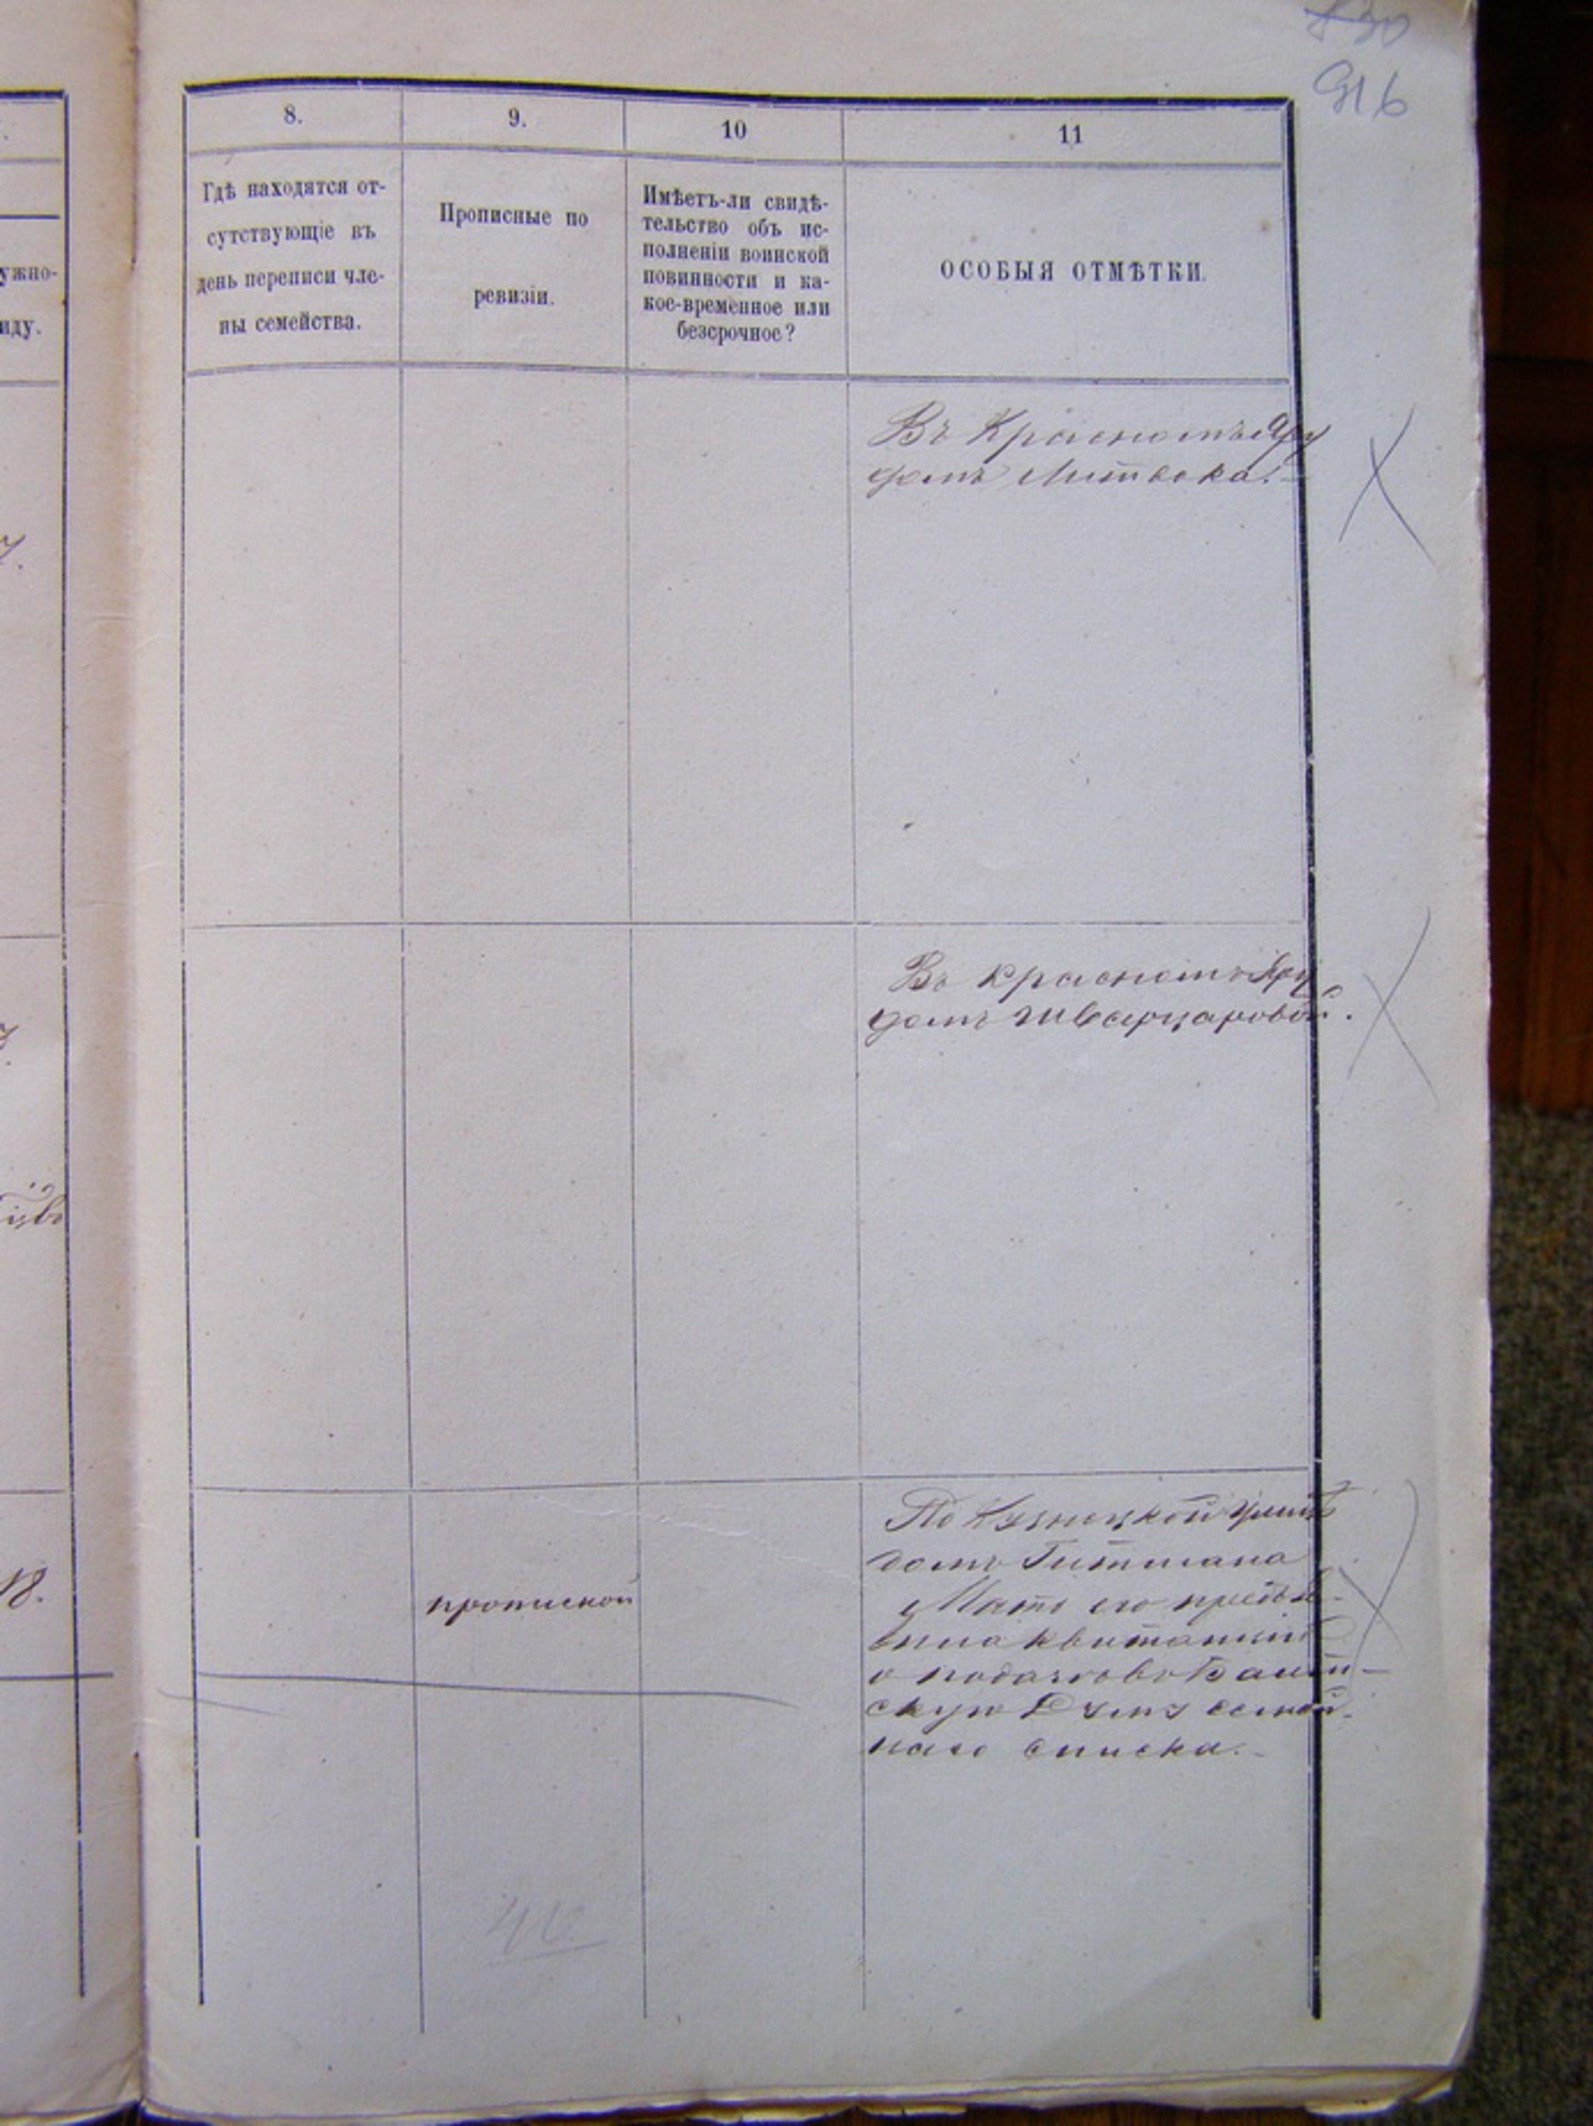 916
8.
9.
10
11
Гдѣ находятся от-
сутствующіе въ
день переписи чле-
ны семейства.
Прописные по
ревизіи.
Имѣетъ-ли свидѣ-
тельство объ ис-
полненіи воинской
повинности и ка-
кое-временное или
безсрочное?
ОСОБЫЯ ОТМѢТКИ.
ужно-
иду.
Въ Красномъ Яру
домъ Литвока.
Въ Красномъ Яру
домъ Шварцаровой.
прописной
По Кузнецкой улицѣ
домъ Гитмана
Мать его предъя-
вила квитанцію
о подачѣ въ Балт-
скую Думу семей-
наго списка.
18.